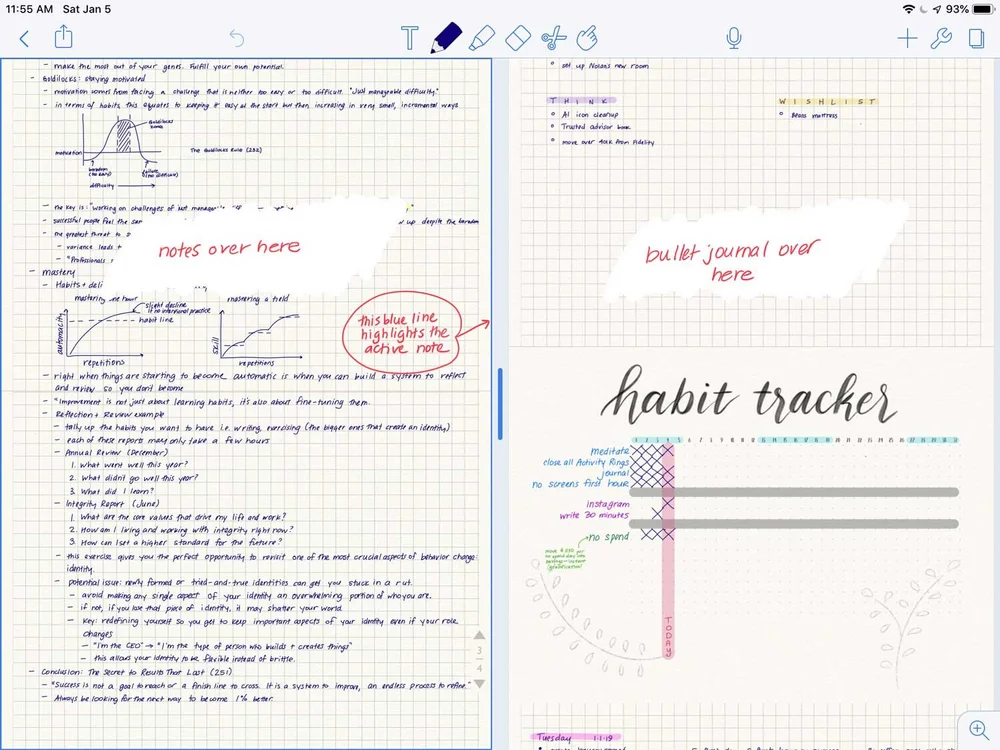 11:55 AM Sat Jan 5
93%
T
- make the most out of your genes. Fulfill your own potential.
- Goldilocks: staying motivated
- motivation comes from facing a challenge that is neither too easy or too difficult. "Just manageable difficulty."
- in terms of habits, this equates to keeping it easy at the start but then increasing in very small, incremental ways
Goldilocks zone
motivation
The Goldilocks Rule (232)
boredom (too easy)
failure (too difficult)
difficulty
- the key is: "working on challenges of just manage
- successful people feel the sa
up despite the boredom
- the greatest threat to s
- variance leads t
- "Professionals
notes over here
- mastery
- Habits + deli
mastering one hour
slight decline if no intentional practice
habit line
automaticity
repetitions
mastering a field
skill
repetitions
this blue line highlights the active note
- right when things are starting to become automatic is when you can build a system to reflect
and review so you don't become
- "Improvement is not just about learning habits, it's also about fine-tuning them.
- Reflection + Review example
- tally up the habits you want to have i.e. writing, exercising (the bigger ones that create an identity)
- each of these reports may only take a few hours
- Annual Review (December)
1. What went well this year?
2. What didn't go well this year?
3. What did I learn?
- Integrity Report (June)
1. What are the core values that drive my life and work?
2. How am I living and working with integrity right now?
3. How can I set a higher standard for the future?
- this exercise gives you the perfect opportunity to revisit one of the most crucial aspects of behavior change:
identity.
- potential issue: newly formed or tried-and-true identities can get you stuck in a rut.
- avoid making any single aspect of your identity an overwhelming portion of who you are.
- if not, if you lose that piece of identity, it may shatter your world.
- Key: redefining yourself so you get to keep important aspects of your identity even if your role
changes
- "I'm the CEO" → "I'm the type of person who builds + creates things"
- this allows your identity to be flexible instead of brittle.
- Conclusion: The Secret to Results That Last (251)
- "Success is not a goal to reach or a finish line to cross. It is a system to improve, an endless process to refine"
- Always be looking for the next way to become 1% better.
3
4
set up Nolan's new room
THINK
AI icon cleanup
Trusted advisor book
move over 401k from Fidelity
WISHLIST
Bears mattress
bullet journal over
here
habit tracker
1 2 3 4 5 6 7 8 9 10 11 12 13 14 15 16 17 18 19 20 21 22 23 24 25 26 27 28 29 30 31
meditate
close all Activity Rings
journal
no screens first hour
instagram
write 30 minutes
no spend
TODAY
Tuesday 1.1.19